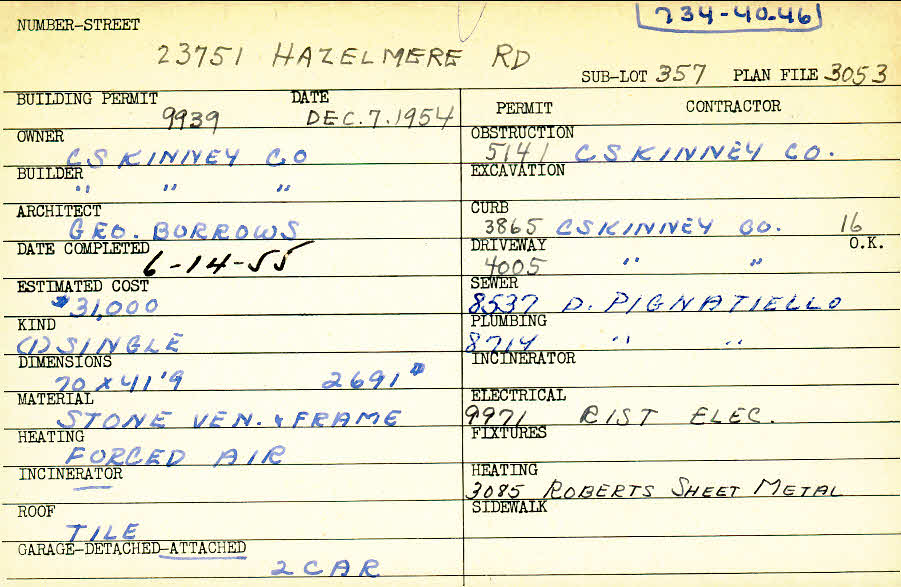 734-40-46
NUMBER-STREET
23751 HAZELMERE RD
SUB-LOT 357 PLAN FILE 3053
BUILDING PERMIT DATE
9939 DEC. 7. 1954
OWNER
CS KINNEY CO
BUILDER
" " "
ARCHITECT
GEO. BURROWS
DATE COMPLETED
6-14-55
ESTIMATED COST
$31,000
KIND
(1) SINGLE
DIMENSIONS
70 x 41'9 2691#
MATERIAL
STONE VEN. & FRAME
HEATING
FORCED AIR
INCINERATOR
ROOF
TILE
GARAGE-DETACHED-ATTACHED
2 CAR
PERMIT CONTRACTOR
OBSTRUCTION
5141 CS KINNEY CO.
EXCAVATION
CURB
3865 CSKINNEY CO. 16
DRIVEWAY O.K.
4005 " "
SEWER
8537 D. PIGNATIELLO
PLUMBING
8714 " "
INCINERATOR
ELECTRICAL
9971 RIST ELEC.
FIXTURES
HEATING
3085 ROBERTS SHEET METAL
SIDEWALK